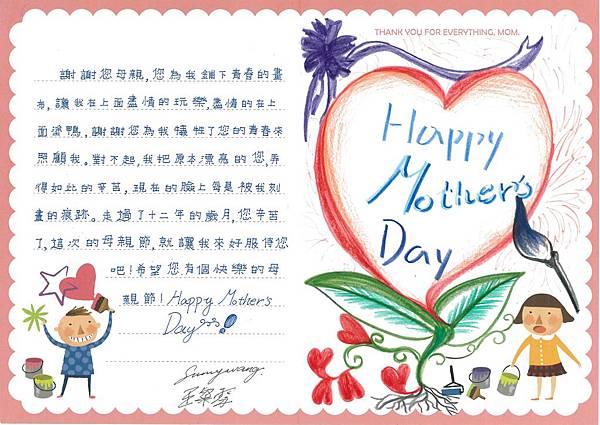 謝謝您母親,您為我鋪下青春的畫
布,讓我在上面盡情的玩樂,盡情的在上
面塗鴨,謝謝您為我犧牲了您的青春來
照顧我。對不起,我把原本漂亮的您,弄
得如此的辛苦,現在的臉上每是被我刻
畫的痕跡。走過了十二年的歲月,您辛苦
了,這次的母親節,就讓我來好好服侍您
吧!希望您有個快樂的母
親節!Happy Mother's
Day
Sunnywang.
THANK YOU FOR EVERYTHING, MOM.
Happy
Mother's
Day